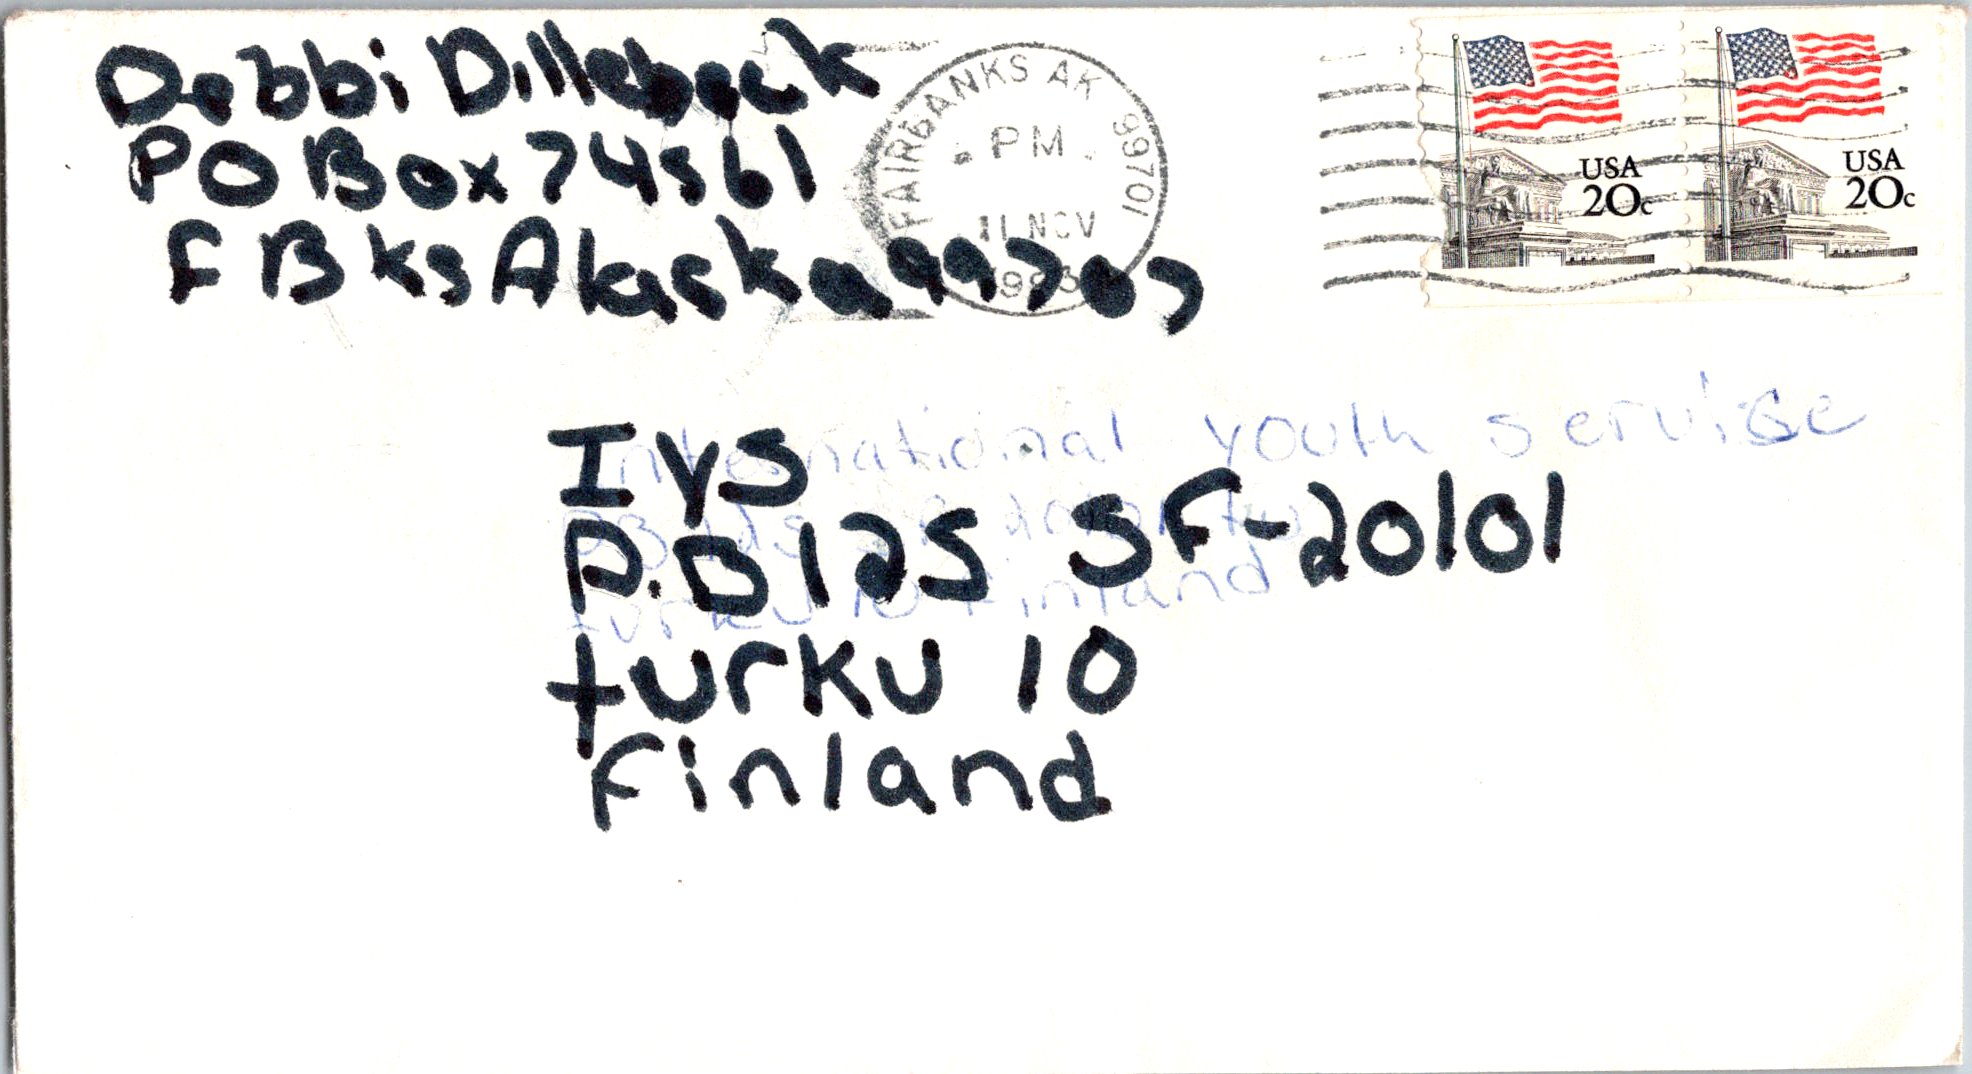 Debbi Dillebeck
PO Box 74561
F B ks Alaska 99707
FAIRBANKS AK 99701
PM
11 NOV
1983
USA
20c
USA
20c
International youth service
Iys
P.B 125 SF-20101
turku 10 Finland
turku 10
Finland